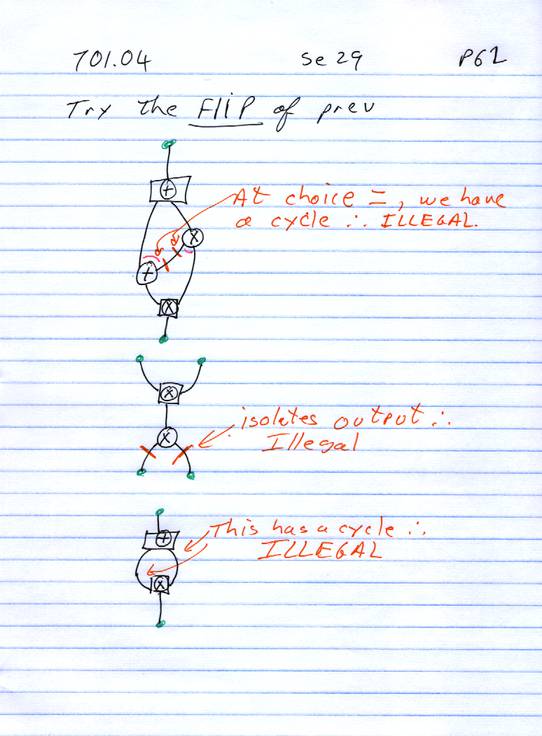 701.04 Se 29 P62
Try the FLIP of prev
+
At choice =, we have
a cycle ∴ ILLEGAL.
x
+
x
x
isolates output ∴
Illegal
x
This has a cycle ∴
ILLEGAL
+
x